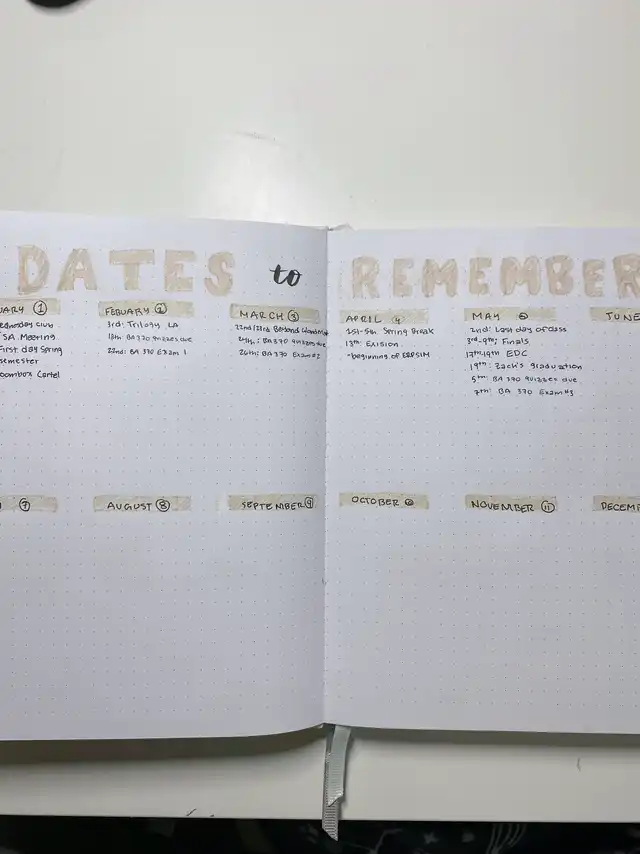 DATES to REMEMBER
UARY 1
ednesday Club
SA Meeting
First day Spring
semester
oombox Cartel
FEBUARY 2
3rd: Trilogy LA
18th: BA 370 quizzes due
22nd: BA 370 Exam 1
MARCH 3
22nd/23rd Beyond Wonderla
24th: BA 370 quizzes due
26th: BA 370 Exam #2
APRIL 4
1st-5th Spring Break
13th: Exision
-beginning of ERPSIM
MAY 5
2nd: Last day of class
3rd-9th: Finals
17th-19th EDC
19th: Zach's graduation
5th: BA 370 quizzes due
7th: BA 370 Exam #3
JUNE
7
AUGUST 8
SEPTEMBER 9
OCTOBER 10
NOVEMBER 11
DECEM